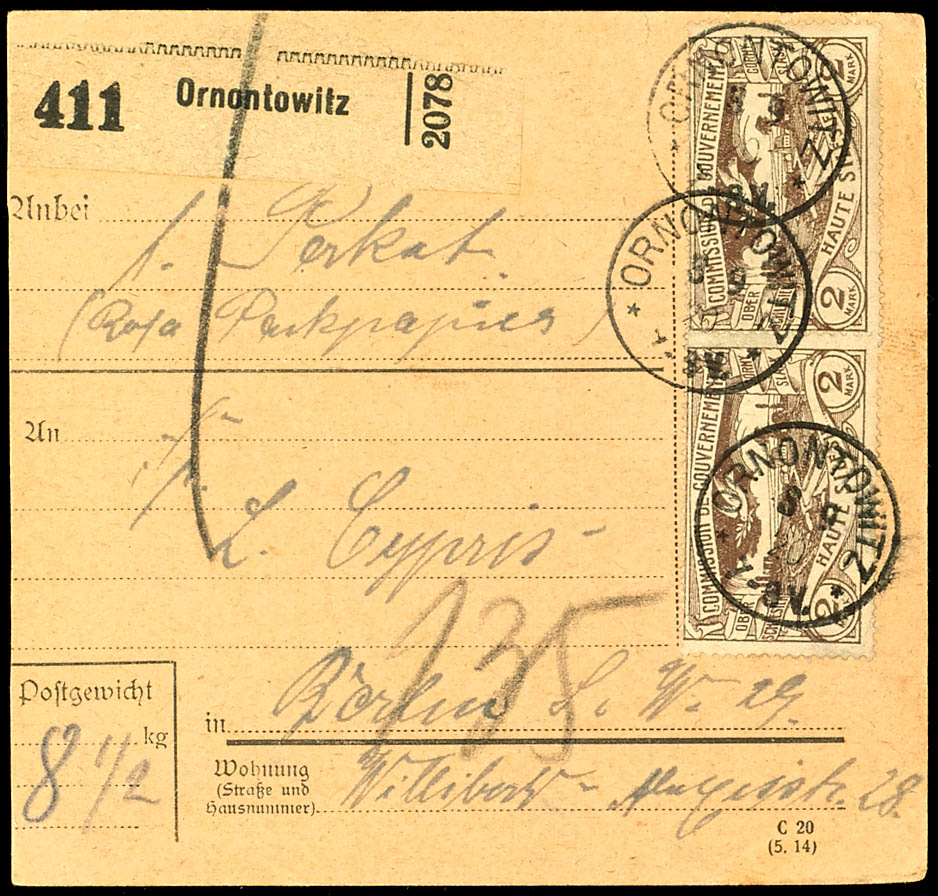 411 Ornontowitz 2078
Anbei
1. Perkat
(Rosa Packpapier)
An
L. Cypris
135
Postgewicht
8 1/2 kg
in Berlin S. W. 29.
Wohnung
(Straße und
Hausnummer)
Willibald Alexisstr. 28.
C 20
(5. 14)
COMMISSION DE GOUVERNEMENT
HAUTE
OBER
2 MARK
2 MARK
COMMISSION DE GOUVERNEMENT
HAUTE
2 MARK
2
ORNONTOWITZ
ORNONTOWITZ
ORNONTOWITZ